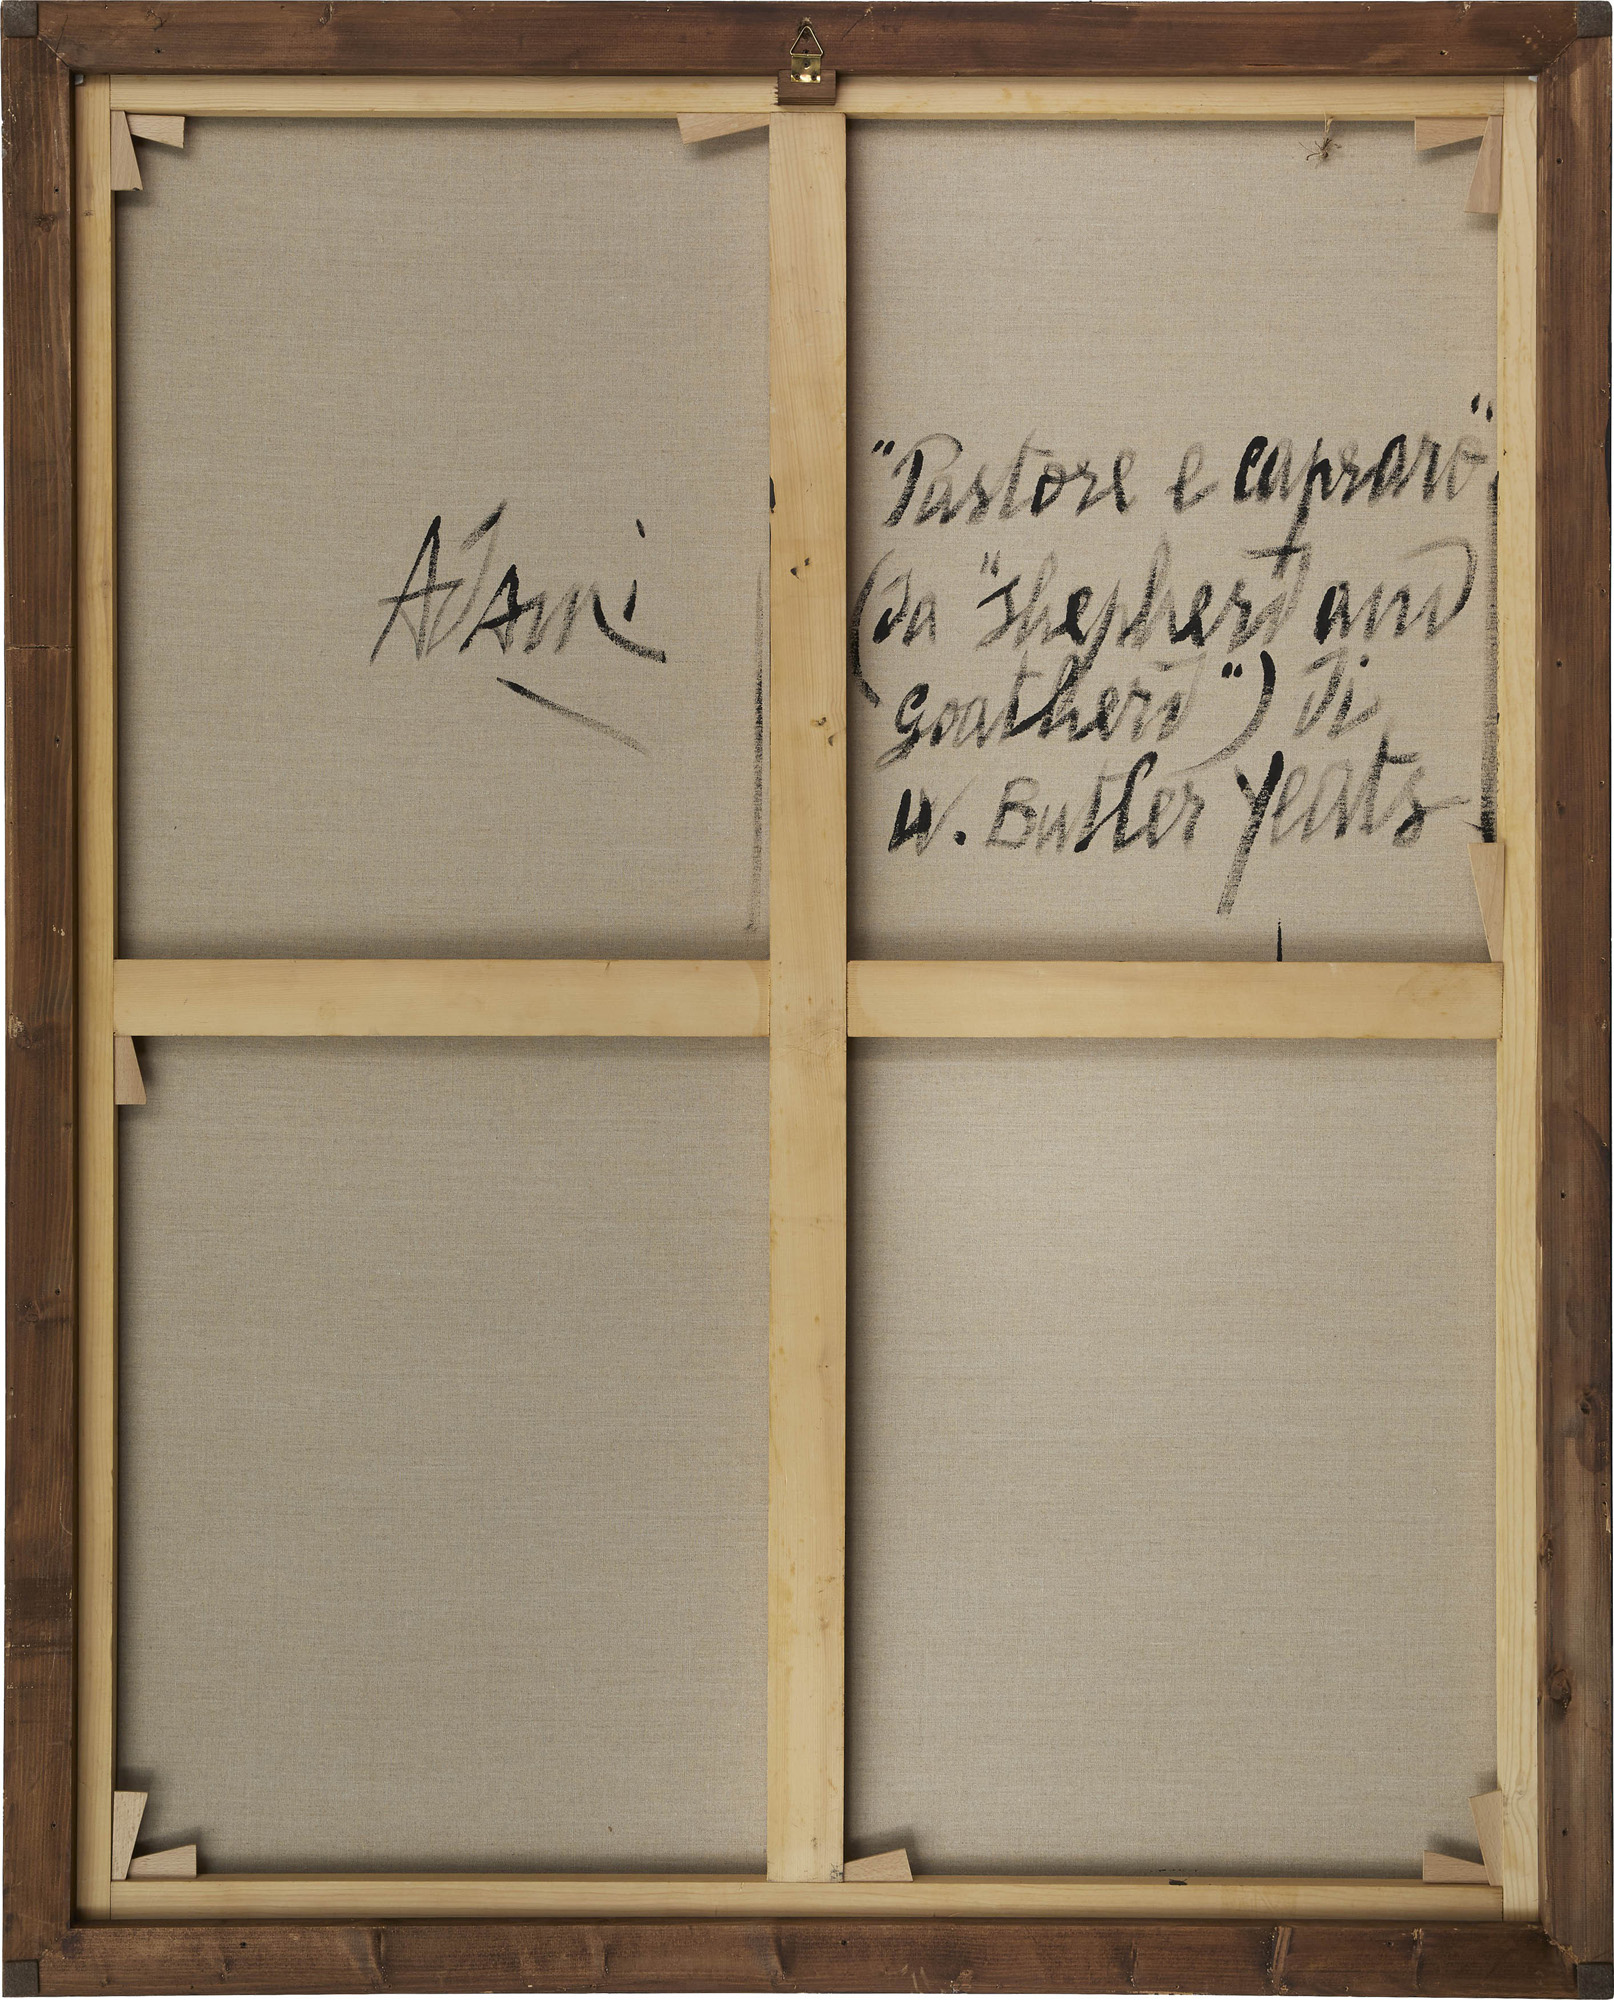 Adami
"Pastore e capraro"
(da "shepherd and
goatherd") di
W. Butler Yeats